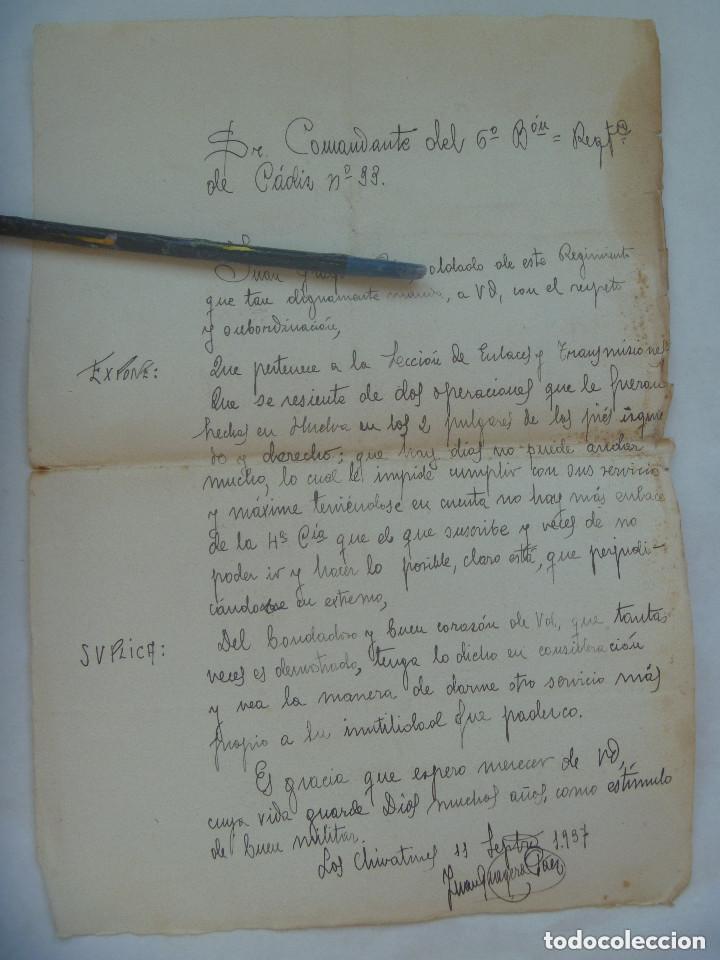 Sr. Comandante del 6º Bón = Regtº
de Cádiz nº 33.
Juan soldado de este Regimiento
que tan dignamente manda, a Vd, con el respeto
y subordinación,
EXPONE: Que pertenece a la Sección de Enlaces y Transmisiones
Que se resiente de dos operaciones que le fueran
hechas en Huelva en los 2 pulgares de los piés izquier
do y derecho; que hay días no puede andar
mucho, lo cual le impide cumplir con sus servicio
y máxime teniéndose en cuenta no hay más enlace
de la 4ª Cía que el que suscribe y veces de no
poder ir y hacer lo posible, claro está, que perjudi-
cándose en extremo,
SUPLICA: Del bondadoso y buen corazón de Vd, que tantas
veces es demostrado, tenga lo dicho en consideración
y vea la manera de darme otro servicio más
propio a su inutilidad que padezco.
Es gracia que espero merecer de Vd,
cuya vida guarde Dios muchos años, como estímulo
de buen militar.
Los 11 Septbre 1.937
Juan Páez
todocoleccion
todocoleccion.net